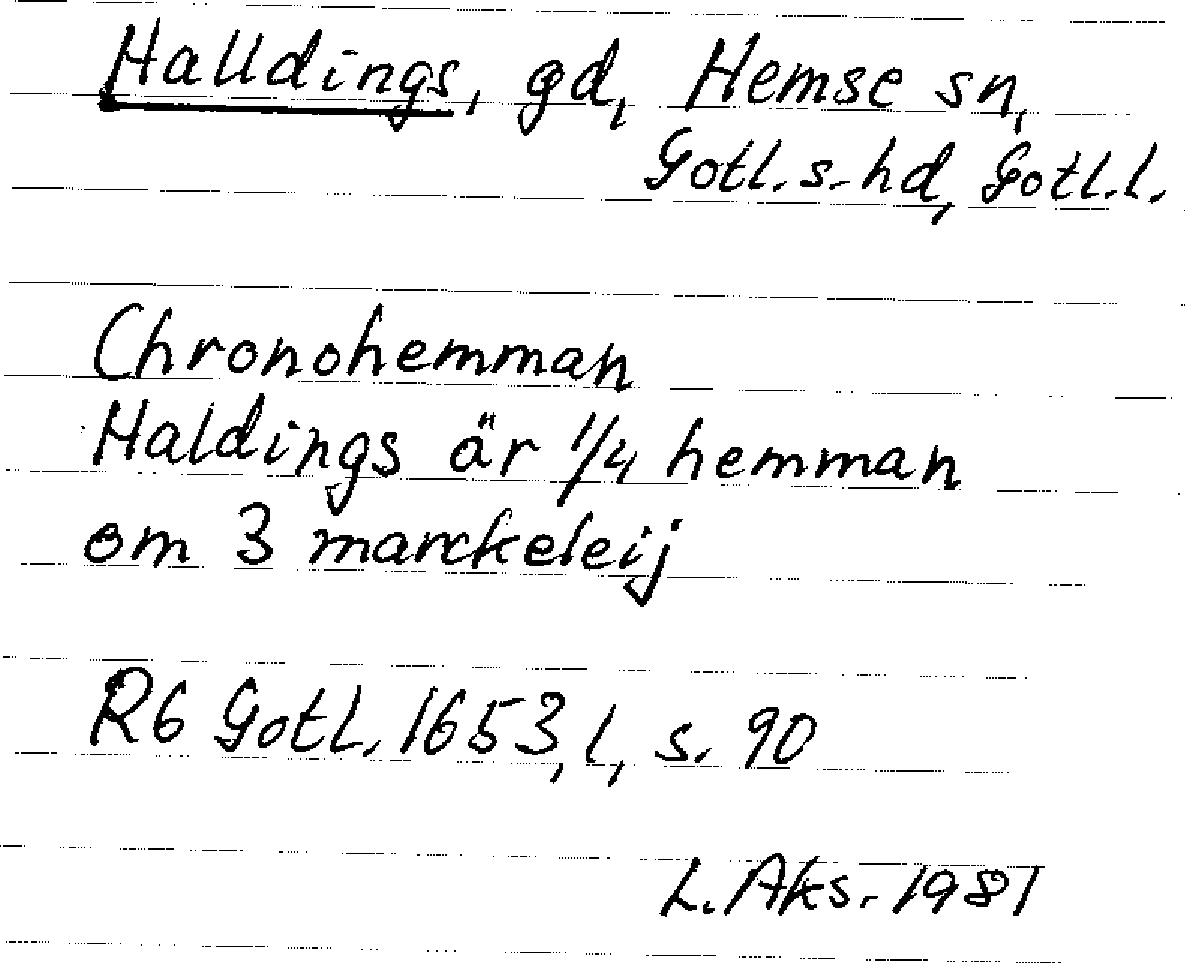 Halldings, gd, Hemse sn,
Gotl. s. hd, Gotl. l.
Chronohemman
Haldings är 1/4 hemman
om 3 marckeleij
R6 Gotl. 1653, l, s. 90
L. Aks. 1981